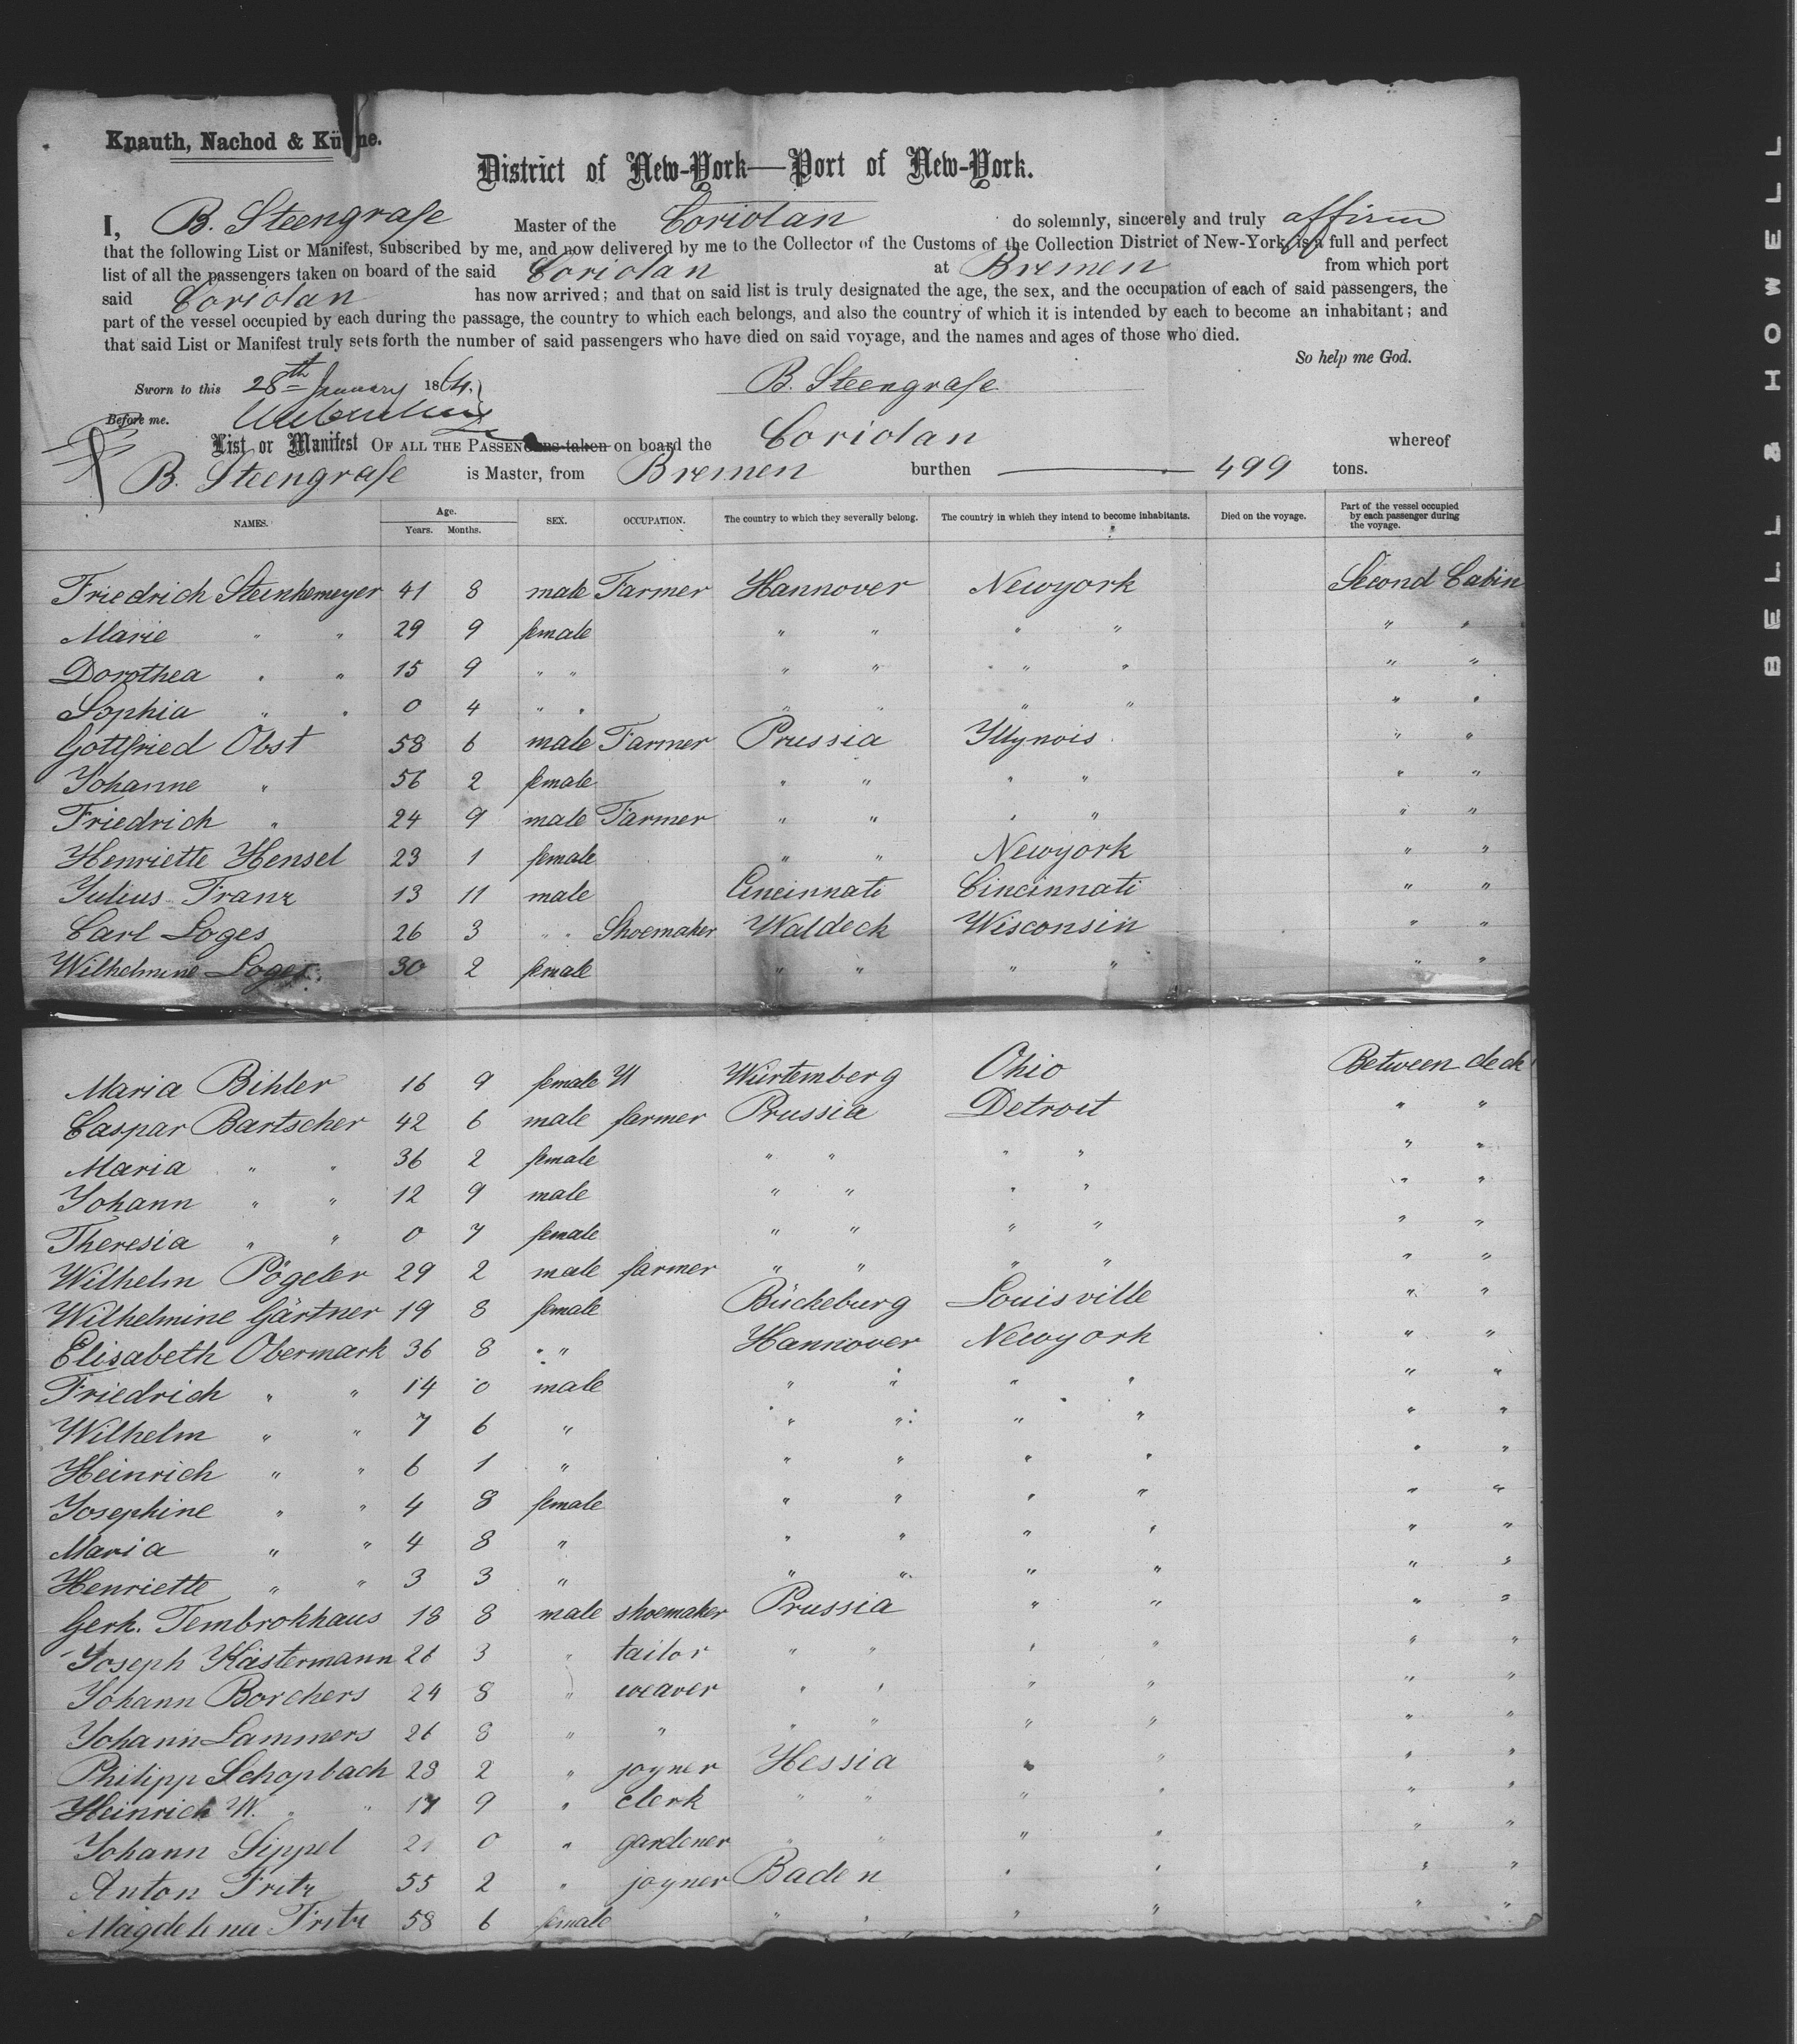 Knauth, Nachod & Kühne.
District of New-York—Port of New-York.
I, B. Steengrafe Master of the Coriolan do solemnly, sincerely and truly affirm
that the following List or Manifest, subscribed by me, and now delivered by me to the Collector of the Customs of the Collection District of New-York, is a full and perfect
list of all the passengers taken on board of the said Coriolan at Bremen from which port
said Coriolan has now arrived; and that on said list is truly designated the age, the sex, and the occupation of each of said passengers, the
part of the vessel occupied by each during the passage, the country to which each belongs, and also the country of which it is intended by each to become an inhabitant; and
that said List or Manifest truly sets forth the number of said passengers who have died on said voyage, and the names and ages of those who died.
So help me God.
Sworn to this 28th January 1864. B. Steengrafe
Before me.
List or Manifest OF ALL THE PASSENGERS taken on board the Coriolan whereof
B. Steengrafe is Master, from Bremen burthen 499 tons.
NAMES. Age. Years. Months. SEX. OCCUPATION. The country to which they severally belong. The country in which they intend to become inhabitants. Died on the voyage. Part of the vessel occupied by each passenger during the voyage.
Friedrich Steinkemeyer 41 8 male Farmer Hannover Newyork Second Cabin
Marie " " 29 9 female " " " " " "
Dorothea " " 15 9 " " " " " " " "
Sophia " " 0 4 " " " " " " " "
Gottfried Obst 58 6 male Farmer Prussia Yllynois " "
Yohanne " 56 2 female " " " " " "
Friedrich " 24 9 male Farmer " " " " " "
Henriette Hensel 23 1 female " " Newyork " "
Yulius Franz 13 11 male Cincinnati Cincinnati " "
Carl Loges 26 3 " " Shoemaker Waldeck Wisconsin " "
Wilhelmine Loges 30 2 female " " " " " "
Maria Bihler 16 9 female Würtemberg Ohio Between deck
Caspar Bartscher 42 6 male farmer Prussia Detroit " "
Maria " " 36 2 female " " " " " "
Yohann " " 12 9 male " " " " " "
Theresia " " 0 7 female " " " " " "
Wilhelm Pögeler 29 2 male farmer " " " " " "
Wilhelmine Gärtner 19 8 female Bückeburg Louisville " "
Elisabeth Obermark 36 8 " " Hannover Newyork " "
Friedrich " " 14 0 male " " " " " "
Wilhelm " " 7 6 " " " " " " "
Heinrich " " 6 1 " " " " " " "
Yosephine " " 4 8 female " " " " " "
Maria " " 4 8 " " " " " " "
Henriette " " 3 3 " " " " " " "
Gerh. Tembrokhaus 18 8 male shoemaker Prussia " " " "
Yoseph Kästermann 26 3 " tailor " " " " " "
Yohann Borchers 24 8 " weaver " " " " " "
Yohann Lammers 26 8 " " " " " " " "
Philipp Schopbach 28 2 " joyner Hessia " " " "
Heinrich W. " " 17 9 " clerk " " " " " "
Yohann Sippel 21 0 " gardener " " " " " "
Anton Fritz 55 2 " joyner Baden " " " "
Magdelena Fritz 58 6 female " " " " " "
BELL & HOWELL